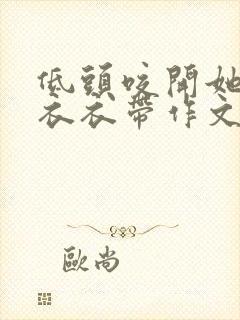 低頭咬開她
衣衣帶作文
歐尚